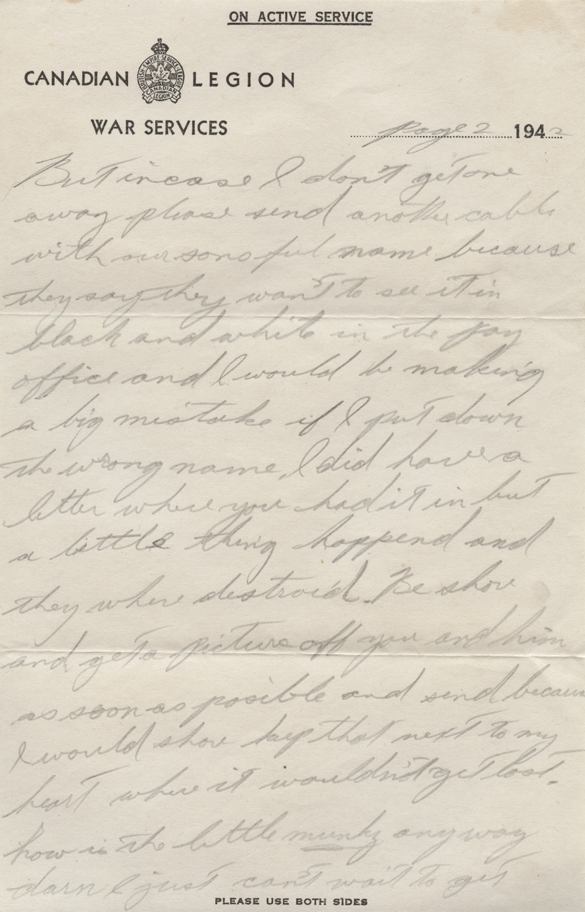 ON ACTIVE SERVICE
CANADIAN LEGION
WAR SERVICES
page 2 1942
But incase I don't get one
away please send another cable
with our sons full name because
they say they want to see it in
black and white in the pay
office and I would be making
a big mistake if I put down
the wrong name. I did have a
letter where you had it in but
a little thing happend and
they where destroid. Be shore
and get a picture off you and him
as soon as posible and send because
I would shore kep that next to my
heart where it wouldn't get lost.
how is the little munky anyway
darn I just can't wait to get
PLEASE USE BOTH SIDES